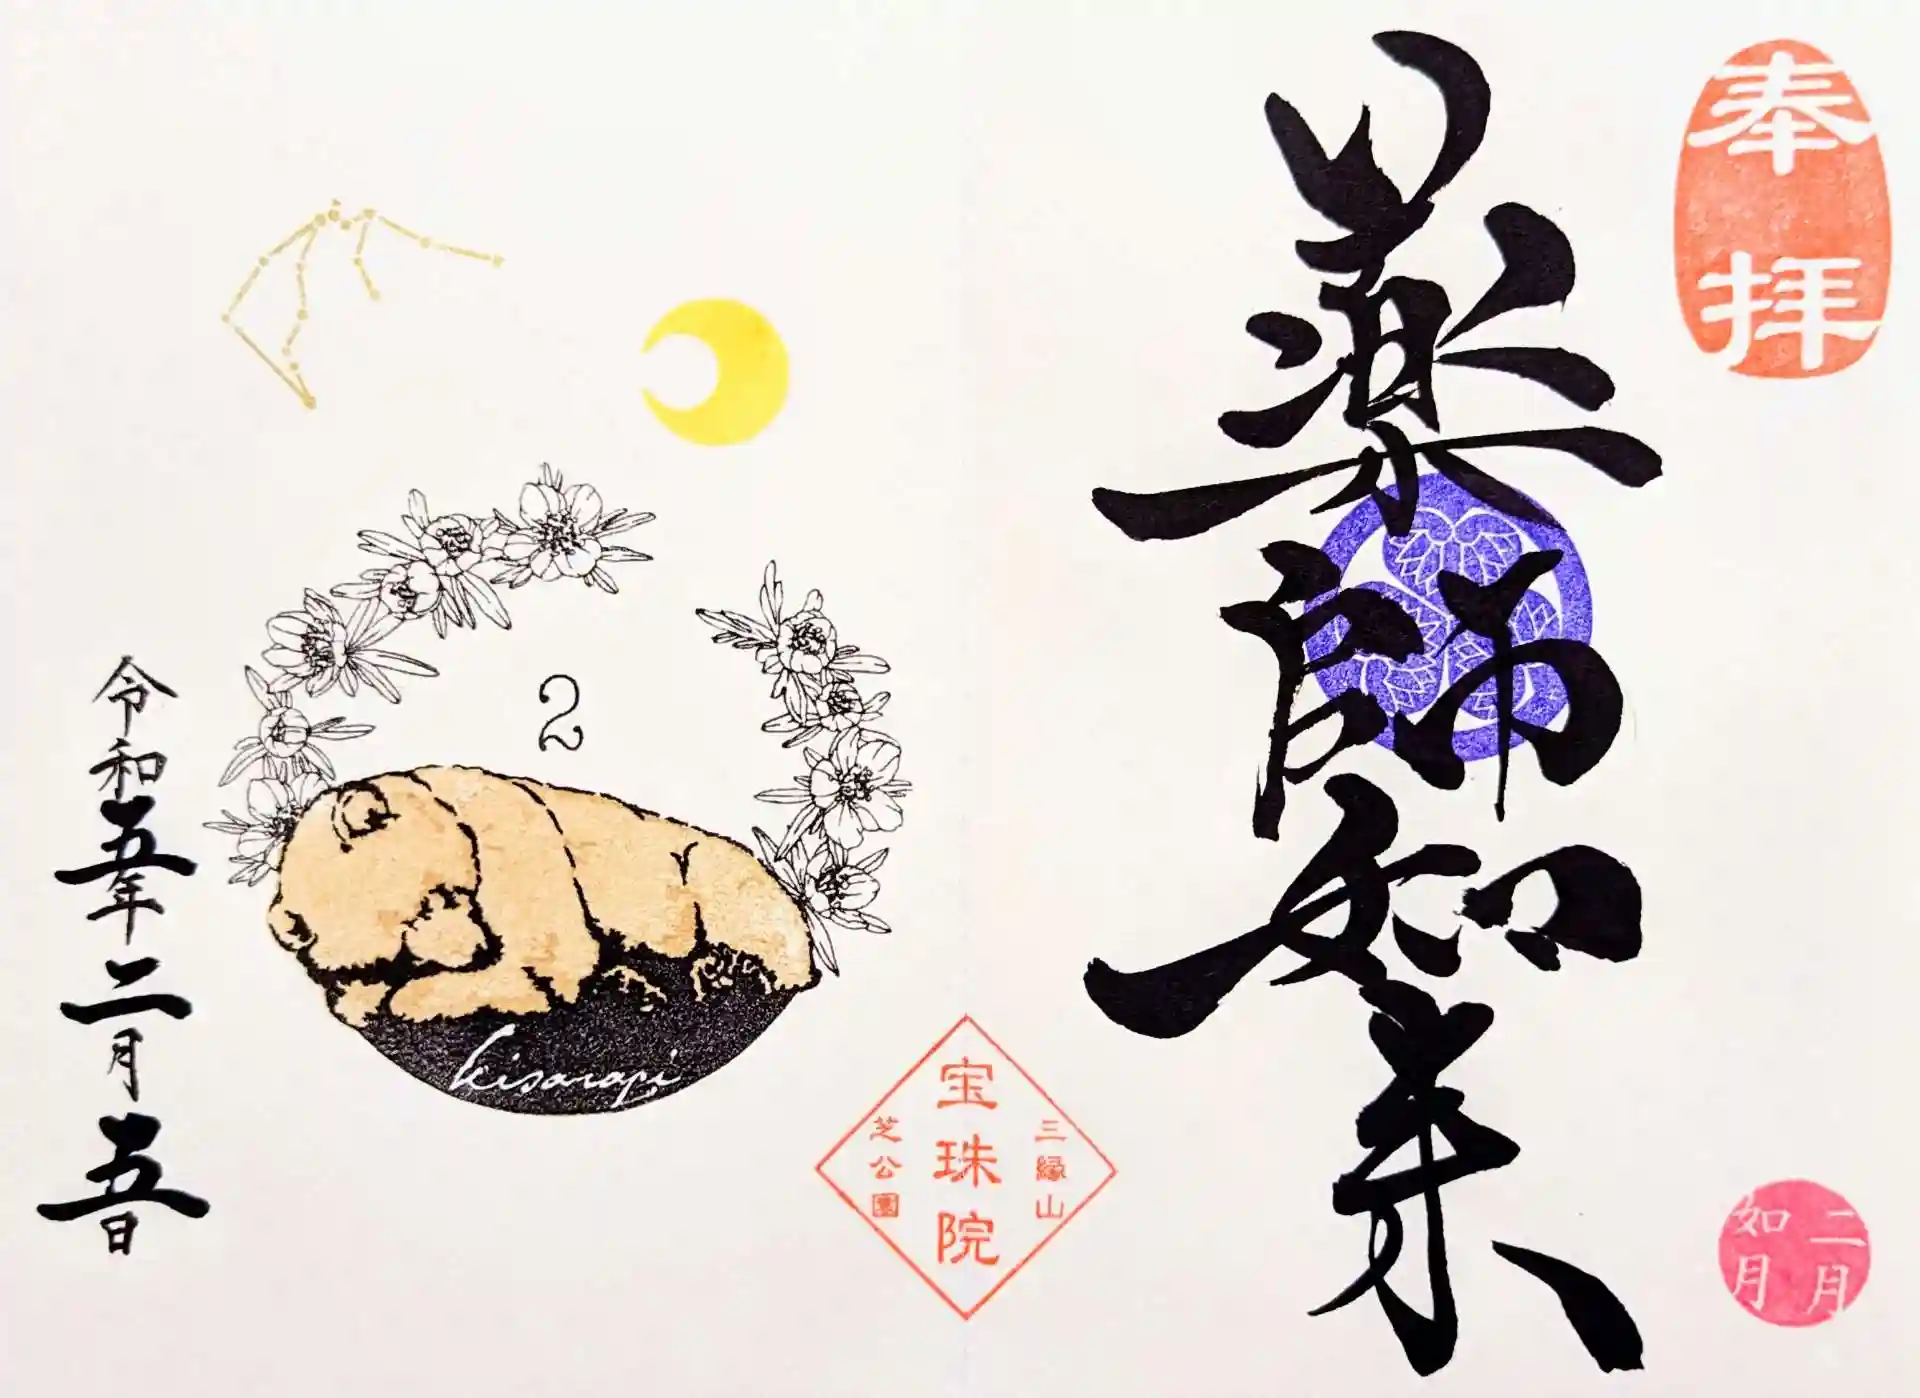 奉拝
薬師如来
二月
如月
三縁山
宝珠院
芝公園
2
kisaragi
令和五年二月五日